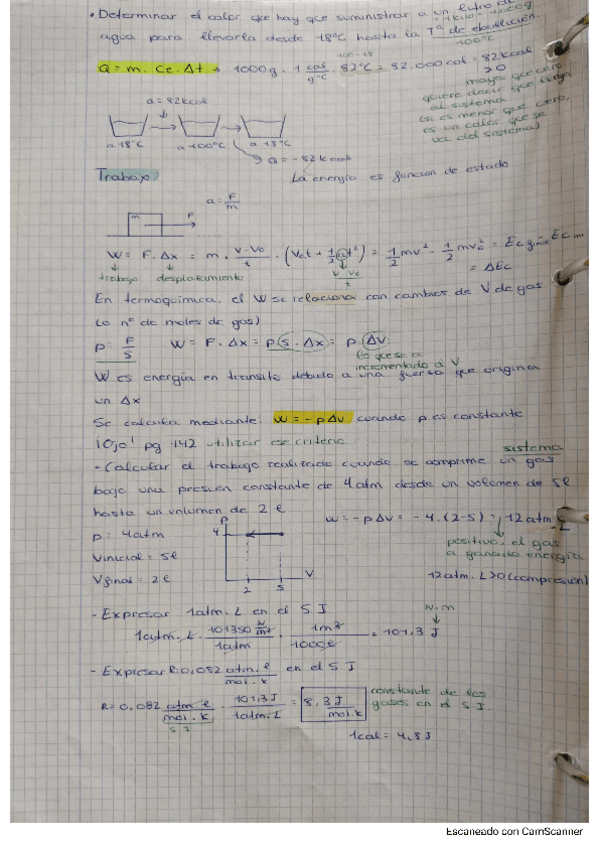 • Determinar el calor que hay que suministrar a un litro de
1 litro = 1000g
agua para llevarla desde 18ºC hasta la Tª de ebullición.
100ºC
100-18
Q = m. Ce. Δt → 1000g . 1 cal/gºC . 82ºC = 82.000 cal = 82 kcal
> 0
mayor que cero
quiere decir que
al sistema
(si es menor que cero,
es un calor que se
va del sistema)
Q = 82 kcal
a 18ºC a 100ºC a 18ºC
Q = - 82 kcal
Trabajo
La energía es función de estado
a = F/m
m F
W = F. Δx = m . V-Vo/t . (Vo t + 1/2 a t²) = 1/2 mv² - 1/2 mvo² =
V-Vo/t
= ΔEc
trabajo desplazamiento
En termoquímica, el W se relaciona con cambios de V de gas
(o nº de moles de gas)
P = F/S W = F. Δx = p S . Δx = p . ΔV
lo que se ha
incrementado el V
W es energía en tránsito debido a una fuerza que origina
un Δx
Se calcula mediante: W = -p ΔV cuando p es constante
¡Ojo! pg 142 utilizar ese criterio
sistema
- Calcular el trabajo realizado cuando se comprime un gas
bajo una presión constante de 4 atm desde un volumen de 5 l
hasta un volumen de 2 l
P: 4 atm
V inicial = 5l
V final = 2 l
P
4
2 5 V
W = -p ΔV = -4. (2-5) = 12 atm. L
positivo, el gas
a ganado energía
12 atm. L > 0 (compresión)
- Expresar 1 atm. L en el S J
N. m
1 atm. L . 101350 N/m²/1 atm . 1 m³/1000 l = 101,3 J
- Expresar R: 0,082 atm. l/mol. k en el S J
R = 0,082 atm l/mol. k . 101,3 J/1 atm. L = 8,3 J/mol. k
S J
constante de los
gases en el S J.
1 cal = 4,8 J
Escaneado con CamScanner